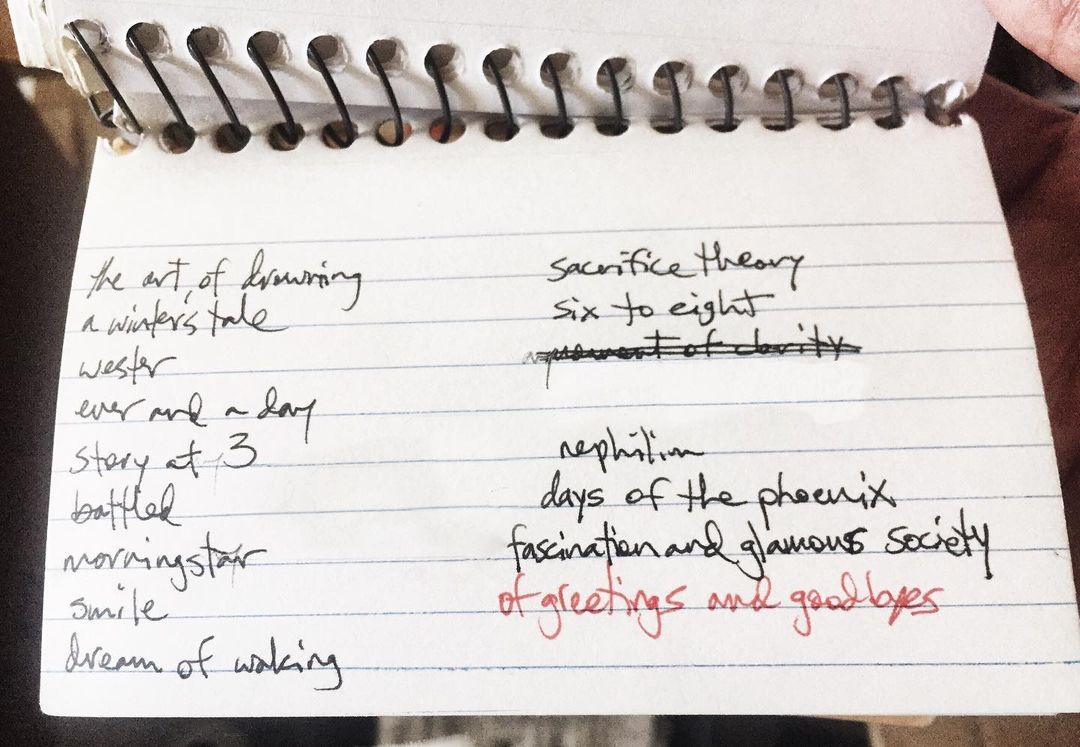 the art of drowning
a winter's tale
wester
ever and a day
story at 3
battled
morningstar
smile
dream of waking
sacrifice theory
six to eight
moment of clarity
nephilim
days of the phoenix
fascination and glamous society
of greetings and goodbyes